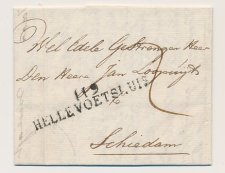 Wel Edele Gestrenger Heer
Den Heere Jan Loopuijt
2
119
HELLEVOETSLUIS
Schiedam